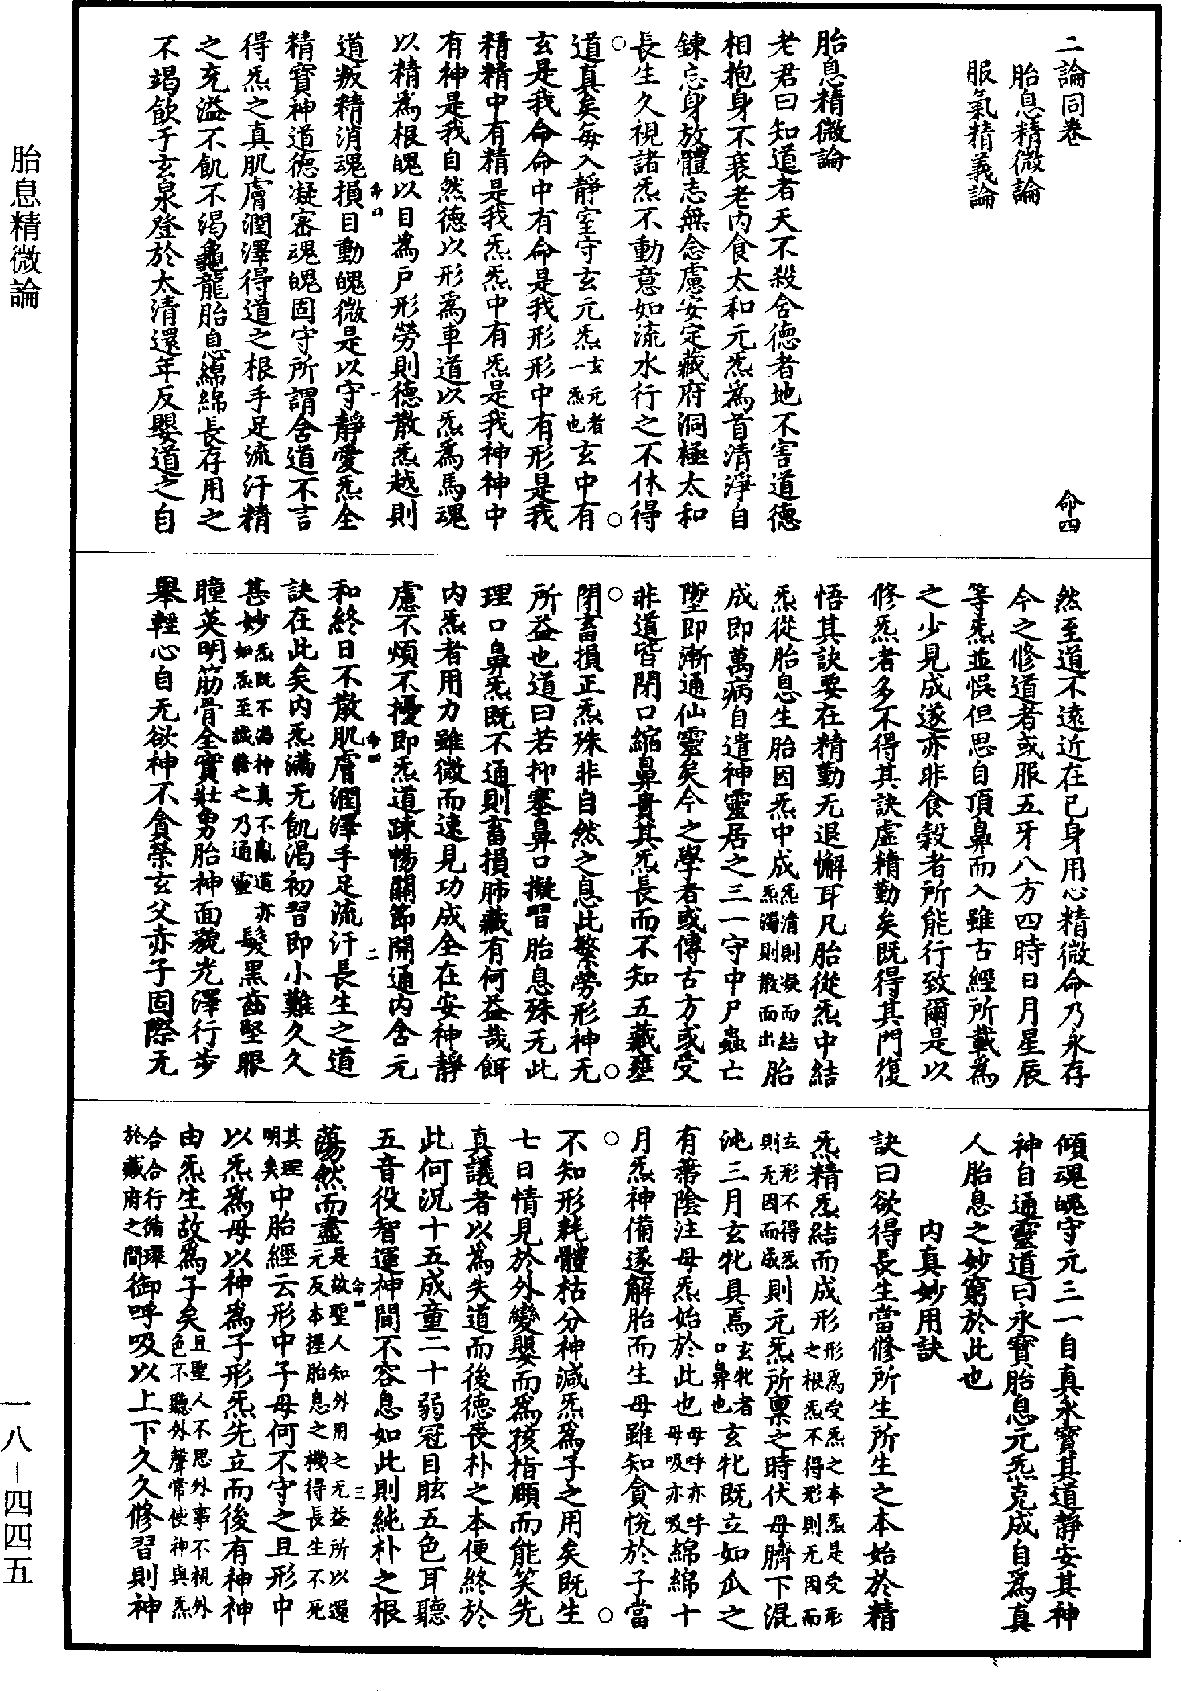 二論同卷　命四
胎息精微論
服氣精義論
胎息精微論
老君曰知道者天不殺含德者地不害道德
相抱身不衰老內食太和元炁為首清淨自
鍊忘身放體志無念慮安定藏府洞極太和
長生久視諸炁不動意如流水行之不休得
道真矣每入靜室守玄元炁玄元者一炁也玄中有
玄是我命命中有命是我形形中有形是我
精精中有精是我炁炁中有炁是我神神中
有神是我自然德以形為車道以炁為馬魂
以精為根魄以目為戶形勞則德散炁越則
道叛精消魂損目動魄微是以守靜愛炁全
精寶神道德凝審魂魄固守所謂含道不言
得炁之真肌膚潤澤得道之根手足流汗精
之充溢不飢不渴龜龍胎息綿綿長存用之
不竭飲于玄泉登於太清還年反嬰道之自
然至道不遠近在已身用心精微命乃永存
今之修道者或服五牙八方四時日月星辰
等炁並悞但思自頂鼻而入雖古經所載為
之少見成遂亦非食穀者所能行致爾是以
修炁者多不得其訣虛精勤矣既得其門復
悟其訣要在精勤无退懈耳凡胎從炁中結
炁從胎息生胎因炁中成炁清則凝而結炁濁則散而出胎
成即萬病自遣神靈居之三一守中尸蟲亡
墮即漸通仙靈矣今之學者或傳古方或受
非道皆閉口縮鼻貴其炁長而不知五藏壅
閉畜損正炁殊非自然之息此繁勞形神无
所益也道曰若抑塞鼻口擬習胎息殊无此
理口鼻炁既不通則畜損肺藏有何益哉餌
內炁者用力雖微而速見功成全在安神靜
慮不煩不擾即炁道踈暢關節開通內含元
和終日不散肌膚潤澤手足流汗長生之道
訣在此矣內炁滿无飢渴初習即小難久久
甚妙炁既不渴神真不亂道亦如炁至誠修之乃通靈髮黑齒堅眼
瞳英明筋骨全實壯勇胎神面貌光澤行步
舉輕心自无欲神不貪榮玄父赤子固際无
傾魂魄守元三一自真永寶其道靜安其神
神自通靈道曰永寶胎息元炁克成自為真
人胎息之妙窮於此也
內真妙用訣
訣曰欲得長生當修所生所生之本始於精
炁精炁結而成形形為受炁之本炁是受形之根炁不得形則无因而立形不得炁則无因而成則元炁所稟之時伏母臍下混
沌三月玄牝具焉玄牝者口鼻也玄牝既立如瓜之
有蔕陰注母炁始於此也母呼亦呼母吸亦吸綿綿十
月炁神備遂解胎而生母雖知貪悅於子當
不知形耗體枯分神減炁為子之用矣既生
七日情見於外變嬰而為孩指頤而能笑先
真議者以為失道而後德喪朴之本便終於
此何況十五成童二十弱冠目眩五色耳聽
五音役智運神間不容息如此則純朴之根
蕩然而盡是故聖人知外用之无益所以還元反本握胎息之機得長生不死其理明矣中胎經云形中子母何不守之且形中
以炁為母以神為子形炁先立而後有神神
由炁生故為子矣且聖人不思外事不視外色不聽外聲常使神與炁合合行循環於藏府之間御呼吸以上下久久修習則神
命四　一
命四　二
命四　三
胎息精微論
一八－四四五